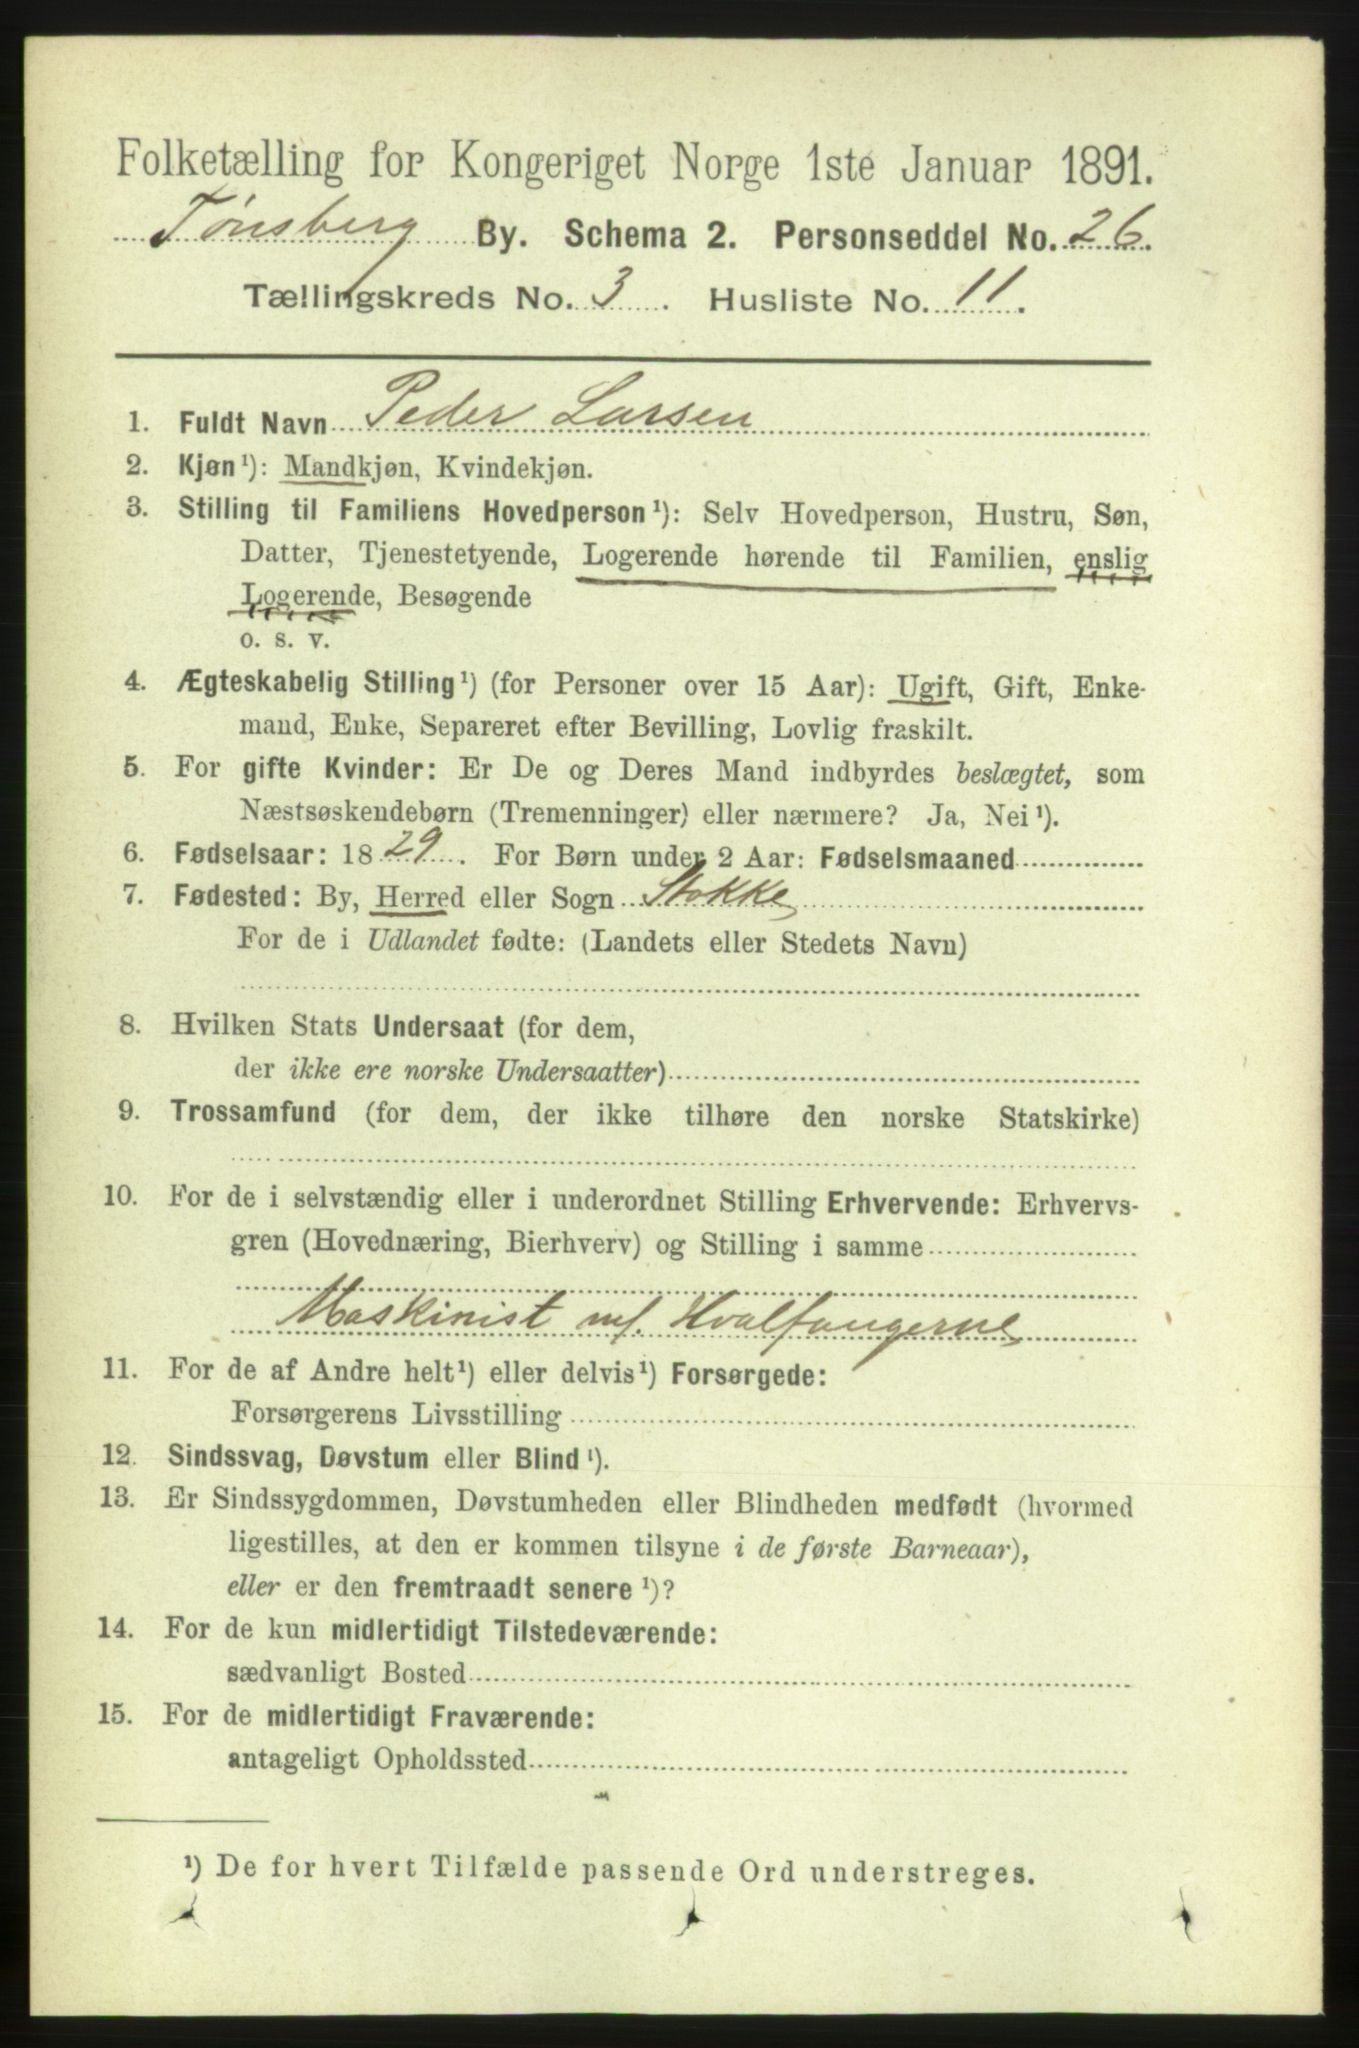 Folketælling for Kongeriget Norge 1ste Januar 1891.
Tønsberg By. Schema 2. Personseddel No. 26.
Tællingskreds No. 3. Husliste No. 11.
1. Fuldt Navn Peder Larsen
2. Kjøn ¹): Mandkjøn, Kvindekjøn.
3. Stilling til Familiens Hovedperson ¹): Selv Hovedperson, Hustru, Søn,
Datter, Tjenestetyende, Logerende hørende til Familien, enslig
Logerende, Besøgende
o. s. v.
4. Ægteskabelig Stilling ¹) (for Personer over 15 Aar): Ugift, Gift, Enke-
mand, Enke, Separeret efter Bevilling, Lovlig fraskilt.
5. For gifte Kvinder: Er De og Deres Mand indbyrdes beslægtet, som
Næstsøskendebørn (Tremenninger) eller nærmere? Ja, Nei ¹).
6. Fødselsaar: 1829. For Børn under 2 Aar: Fødselsmaaned
7. Fødested: By, Herred eller Sogn Stokke
For de i Udlandet fødte: (Landets eller Stedets Navn)
8. Hvilken Stats Undersaat (for dem,
der ikke ere norske Undersaatter)
9. Trossamfund (for dem, der ikke tilhøre den norske Statskirke)
10. For de i selvstændig eller i underordnet Stilling Erhvervende: Erhvervs-
gren (Hovednæring, Bierhverv) og Stilling i samme
Maskinist v/. Hvalfangerne
11. For de af Andre helt ¹) eller delvis ¹) Forsørgede:
Forsørgerens Livsstilling
12. Sindssvag, Døvstum eller Blind ¹).
13. Er Sindssygdommen, Døvstumheden eller Blindheden medfødt (hvormed
ligestilles, at den er kommen tilsyne i de første Barneaar),
eller er den fremtraadt senere ¹)?
14. For de kun midlertidigt Tilstedeværende:
sædvanligt Bosted
15. For de midlertidigt Fraværende:
antageligt Opholdssted
¹) De for hvert Tilfælde passende Ord understreges.